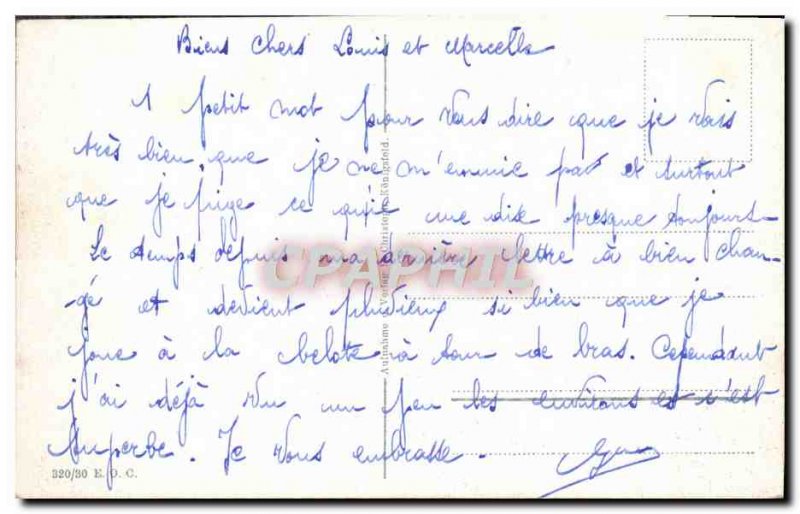 Biens chers Louis et Marcelle
1 petit mot pour vous dire que je vais
très bien, que je ne m'ennuie pas et surtout
que je pige ce qu'il me dise presque toujours
Le temps depuis ma dernière lettre à bien chan-
-gé et devient pluvieux si bien que je
joue à la belote à tour de bras. Cependant
j'ai déjà vu un peu les environs et s'est
superbe. Je vous embrasse.
Aufnahme u. Verlag B. Christoph, Königsfeld.
CPAPHIL
320/30 E. O. C.